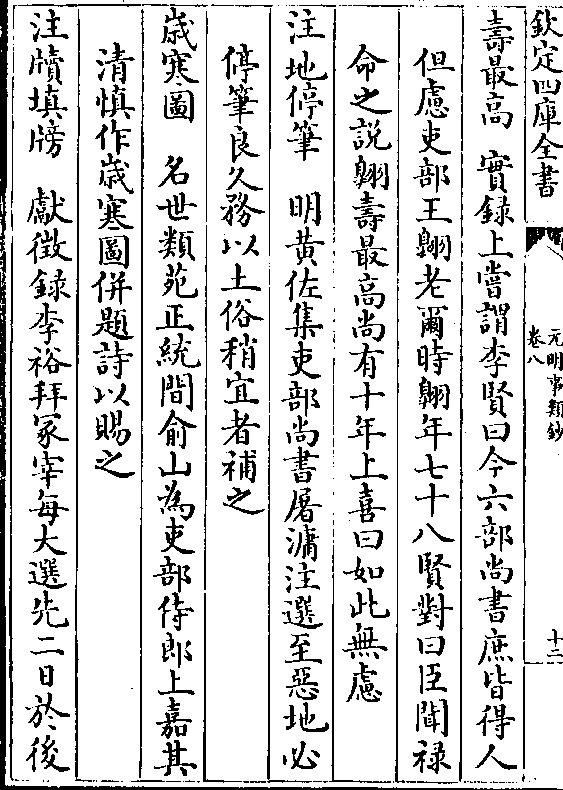 欽定四庫全書
元明事類鈔
卷八
十二
壽最高　實録上嘗謂李賢曰今六部尚書庶皆得人
但慮吏部王翺老爾時翺年七十八賢對曰臣聞禄
命之説翺壽最高尚有十年上喜曰如此無慮
注地停筆　明黄佐集吏部尚書屠滽注選至惡地必
停筆良久務以土俗稍宜者補之
歳寒圖　名世類苑正統間俞山為吏部侍郎上嘉其
清慎作歳寒圖併題詩以賜之
注牘填牓　獻徵録李裕拜冢宰每大選先二日於後